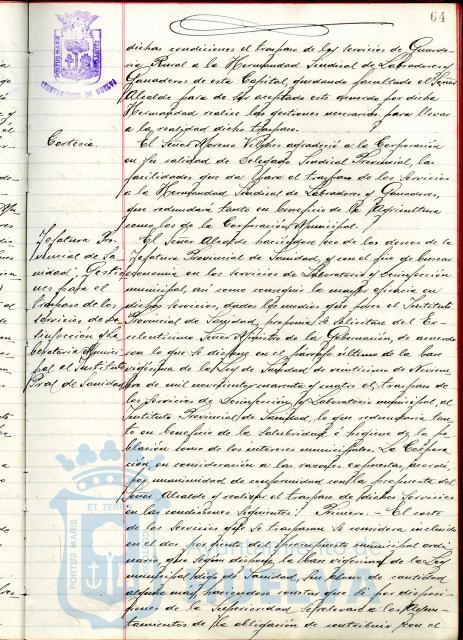 64
PORTUS MARIS
AYUNTAMIENTO DE HUELVA
dichas condiciones el traspaso de los servicios de Guarde-
ria Rural a la Hermandad Sindical de Labradores y
Ganaderos de esta Capital, quedando facultado el Señor
Alcalde para de ser aceptado este acuerdo por dicha
Hermandad realice las gestiones necesarias para llevar
a la realidad dicho traspaso.
Cortesia.
El Señor Moreno agradeció a la Corporación
en su calidad de Delegado Sindical Provincial, las
facilidades que da para el traspaso de los servicios
a la Hermandad Sindical de Labradores y Ganaderos,
que redundará tanto en beneficio de la Agricultura
como los de la Corporación Municipal.
Jefatura Pro-
vincial de Sa-
nidad. Gestio-
nes para el
traspaso de los
servicios de De-
sinfección y La-
boratorio Munici-
pal al Instituto
Prval de Sanidad
El Señor Alcalde haciendose eco de los deseos de la
Jefatura Provincial de Sanidad, y con el fin de buscar
economia en los servicios de Laboratorio y Desinfección
municipal, asi como conseguir la mayor eficacia en
dichos servicios, dados los medios que posee el Instituto
Provincial de Sanidad, propone, se solicitase del Ex-
celentisimo Señor Ministro de la Gobernación, de acuerdo
con lo que se dispone en el párrafo último de la base
vigésima de la Ley de Sanidad de veinticinco de Noviem-
bre de mil novecientos cuarenta y cuatro el traspaso de
los Servicios de Desinfección y Laboratorio municipal, al
Instituto Provincial de Sanidad, lo que redundaria tan-
to en beneficio de la Salubridad é higiene de la po-
blación como de los intereses municipales. La Corpora-
ción, en consideración a las razones expuestas, acordó
por unanimidad de conformidad con la propuesta del
Señor Alcalde y realizar el traspaso de dichos Servicios
en las condiciones siguientes: Primero.- El costo
de los Servicios que se traspasan se considera incluido
en el dos por ciento del presupuesto municipal ordi-
nario que según dispone la base vigésima de la Ley
municipal de Sanidad, sin abono de cantidad
alguna mas, haciendose constar que si por disposi-
ciones de la Superioridad se relevara a los Ayun-
tamientos de la obligación de contribuir con el
ET TERR
PORTUS MARIS
Ayuntamiento de
HUELVA